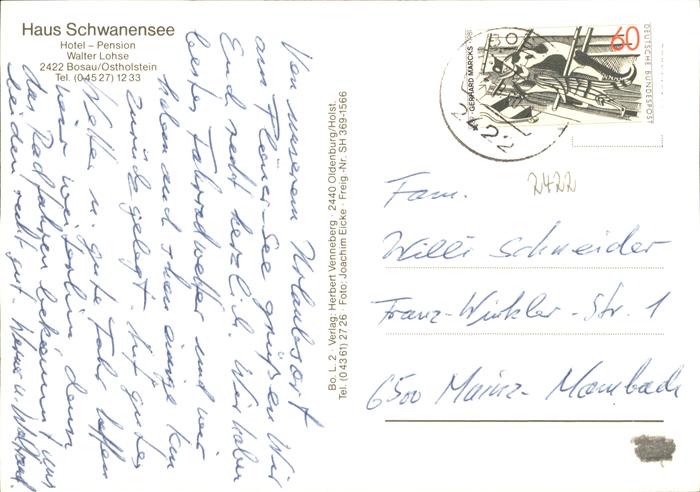 Haus Schwanensee
Hotel – Pension
Walter Lohse
2422 Bosau/Ostholstein
Tel. (0 45 27) 12 33
Von unserem Urlaubsort
am Plöner-See grüßen Wir
Euch recht herzlich. Wir haben
bestes Fahrradwetter und wir
haben auch schon einige km
zurückgelegt. Auf gutes
Wetter u. gute Fahrt hoffen
wir weiterhin denn
das Radfahren bekommt uns
beiden recht gut. Werner u. Waltraud
Bo. L. 2 · Verlag: Herbert Venneberg · 2440 Oldenburg/Holst.
Tel. (0 43 61) 27 26 · Foto: Joachim Eicke · Freig.-Nr. SH 369-1566
GERHARD MARCKS
60
DEUTSCHE BUNDESPOST
2422
Fam.
Willi Schneider
Franz-Winkler-Str. 1
6500 Mainz-Mombach